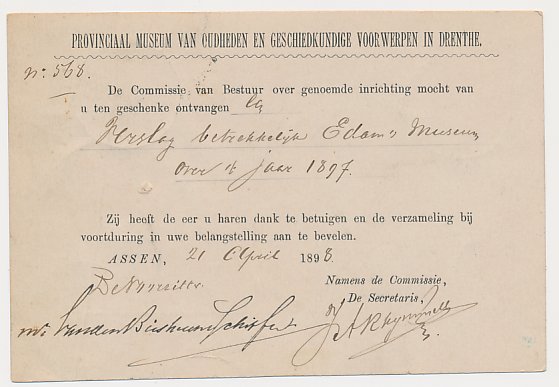 PROVINCIAAL MUSEUM VAN OUDHEDEN EN GESCHIEDKUNDIGE VOORWERPEN IN DRENTHE.
No. 568.
De Commissie van Bestuur over genoemde inrichting mocht van
u ten geschenke ontvangen
Verslag betrekkelijk Edam's Museum
over 't jaar 1897.
Zij heeft de eer u haren dank te betuigen en de verzameling bij
voortduring in uwe belangstelling aan te bevelen.
ASSEN, 21 April 1898.
Namens de Commissie,
De Voorzitter De Secretaris,
mr.